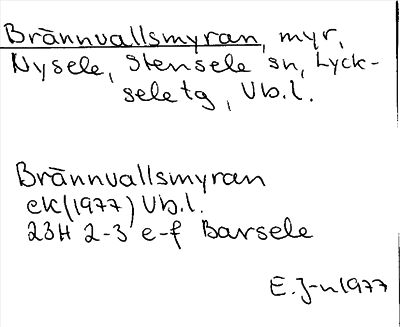 Brännvallsmyran, myr,
Nysele, Stensele sn, Lyck-
sele tg, Vb.l.
Brännvallsmyran
ek (1977) Vb.l.
23H 2-3 e-f Barsele
E.J-n 1977